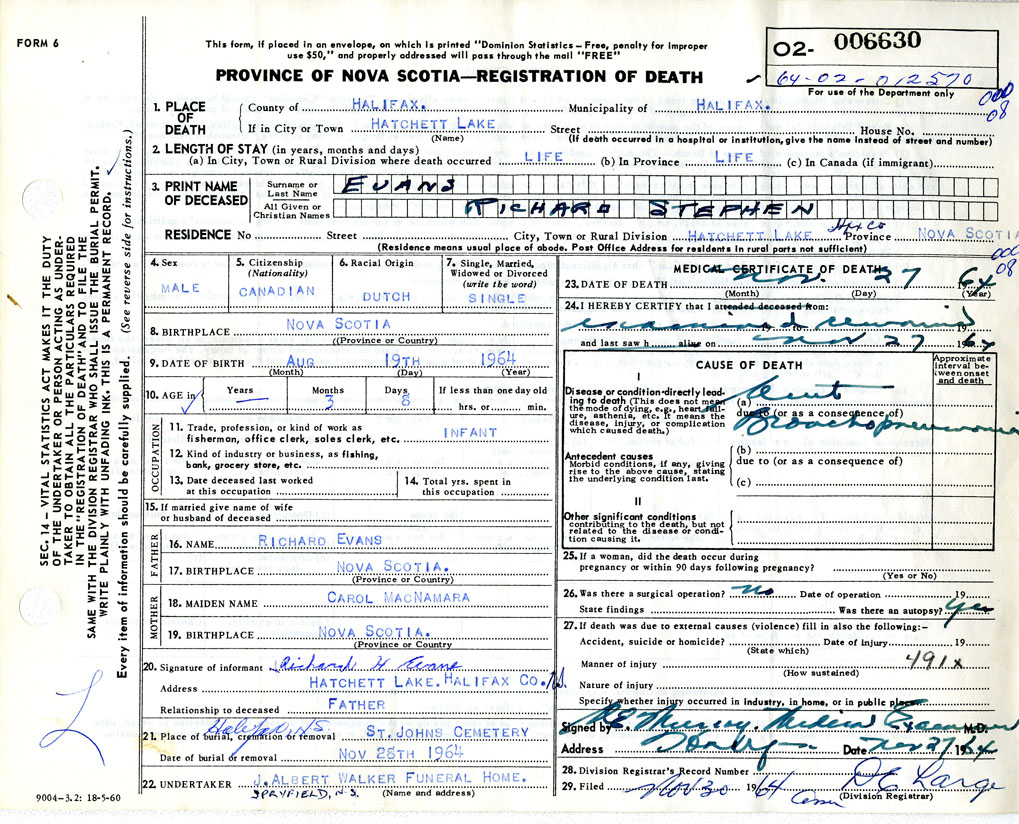 FORM 6
This form, if placed in an envelope, on which is printed "Dominion Statistics—Free, penalty for improper
use $50," and properly addressed will pass through the mail "FREE"
PROVINCE OF NOVA SCOTIA—REGISTRATION OF DEATH
02- 006630
64-02-012570
For use of the Department only
000
08
1. PLACE OF DEATH
County of HALIFAX. Municipality of HALIFAX.
If in City or Town HATCHETT LAKE Street House No.
(Name) (If death occurred in a hospital or institution, give the name instead of street and number)
2. LENGTH OF STAY (in years, months and days)
(a) In City, Town or Rural Division where death occurred LIFE (b) In Province LIFE (c) In Canada (if immigrant)
3. PRINT NAME OF DECEASED
Surname or Last Name EVANS
All Given or Christian Names RICHARD STEPHEN
Hfx Co
RESIDENCE No. Street City, Town or Rural Division HATCHETT LAKE Province NOVA SCOTIA
(Residence means usual place of abode. Post Office Address for residents in rural parts not sufficient)
000
08
4. Sex MALE
5. Citizenship (Nationality) CANADIAN
6. Racial Origin DUTCH
7. Single, Married, Widowed or Divorced (write the word) SINGLE
8. BIRTHPLACE NOVA SCOTIA
((Province or Country)
9. DATE OF BIRTH AUG 19TH 1964
(Month) (Day) (Year)
10. AGE in Years — Months 3 Days 8 If less than one day old
hrs. or min.
OCCUPATION
11. Trade, profession, or kind of work as
fisherman, office clerk, sales clerk, etc. INFANT
12. Kind of industry or business, as fishing,
bank, grocery store, etc.
13. Date deceased last worked
at this occupation
14. Total yrs. spent in
this occupation
15. If married give name of wife
or husband of deceased
FATHER
16. NAME RICHARD EVANS
17. BIRTHPLACE NOVA SCOTIA.
(Province or Country)
MOTHER
18. MAIDEN NAME CAROL MACNAMARA
19. BIRTHPLACE NOVA SCOTIA.
(Province or Country
20. Signature of informant Richard H Evans
Address HATCHETT LAKE. HALIFAX CO. N.S.
Relationship to deceased FATHER
Halifax, N.S.
21. Place of burial, cremation or removal ST. JOHNS CEMETERY
Date of burial or removal NOV 28TH 1964
22. UNDERTAKER J. ALBERT WALKER FUNERAL HOME.
SPRYFIELD, N.S. (Name and address)
9004-3.2: 18-5-60
MEDICAL CERTIFICATE OF DEATH
23. DATE OF DEATH Nov. 27 64
(Month) (Day) (Year)
24. I HEREBY CERTIFY that I attended deceased from:
examined remains 19
and last saw h alive on Nov 27 1964
CAUSE OF DEATH
Approximate interval between onset and death
I
Disease or condition directly leading to death (This does not mean
the mode of dying, e.g., heart failure, asthenia, etc. It means the
disease, injury, or complication
which caused death.)
(a) Acute
due to (or as a consequence of)
Bronchopneumonia
Antecedent causes
Morbid conditions, if any, giving
rise to the above cause, stating
the underlying condition last.
(b)
due to (or as a consequence of)
(c)
II
Other significant conditions
contributing to the death, but not
related to the disease or condition causing it.
25. If a woman, did the death occur during
pregnancy or within 90 days following pregnancy?
(Yes or No)
26. Was there a surgical operation? No Date of operation 19
State findings Was there an autopsy? Yes
27. If death was due to external causes (violence) fill in also the following:-
Accident, suicide or homicide? Date of injury 19
(State which)
Manner of injury 491x
(How sustained)
Nature of injury
Specify whether injury occurred in industry, in home, or in public place
Signed by Murray, Medical Examiner M.D.
Address Date Nov 27 1964
28. Division Registrar's Record Number
29. Filed Nov 30 1964 D E Large
(Division Registrar)
SEC. 14 — VITAL STATISTICS ACT MAKES IT THE DUTY
OF THE UNDERTAKER OR PERSON ACTING AS UNDERTAKER TO OBTAIN ALL THE PARTICULARS REQUIRED
IN THE "REGISTRATION OF DEATH" AND TO FILE THE
SAME WITH THE DIVISION REGISTRAR WHO SHALL ISSUE THE BURIAL PERMIT.
WRITE PLAINLY WITH UNFADING INK. THIS IS A PERMANENT RECORD.
Every item of information should be carefully supplied. (See reverse side for instructions.)